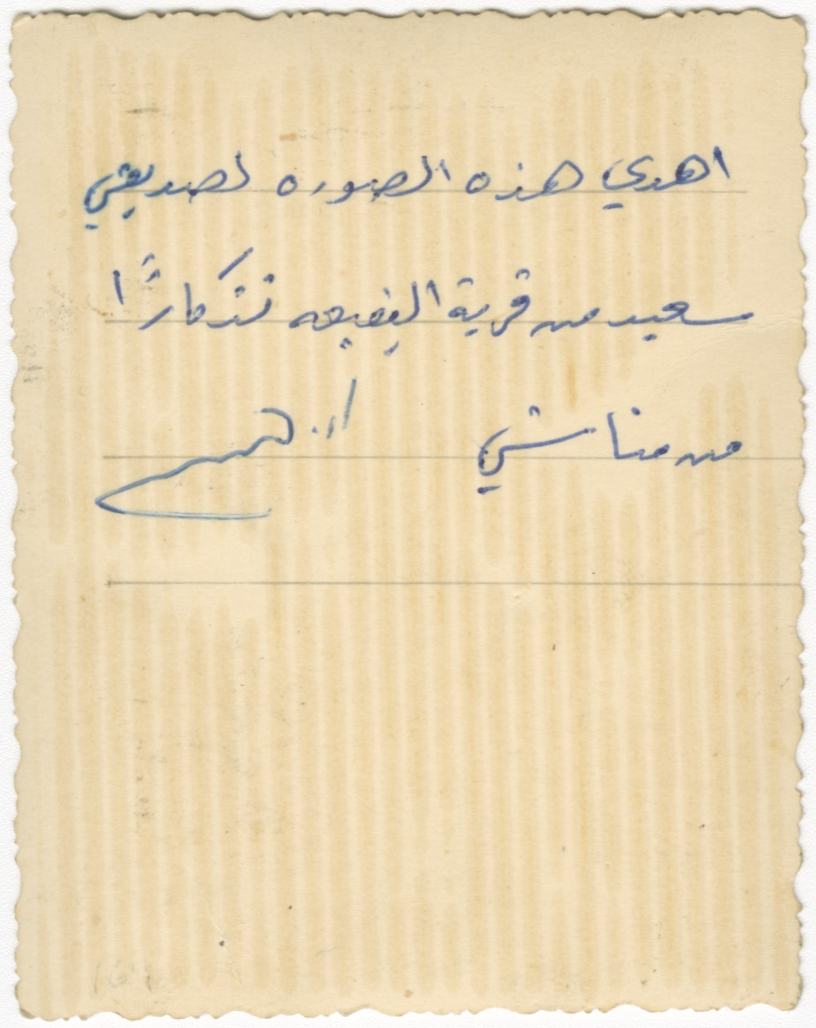 اهدي هذه الصوره لصديقي
سعيد من قرية البقيعه تذكارًا
من مناشي